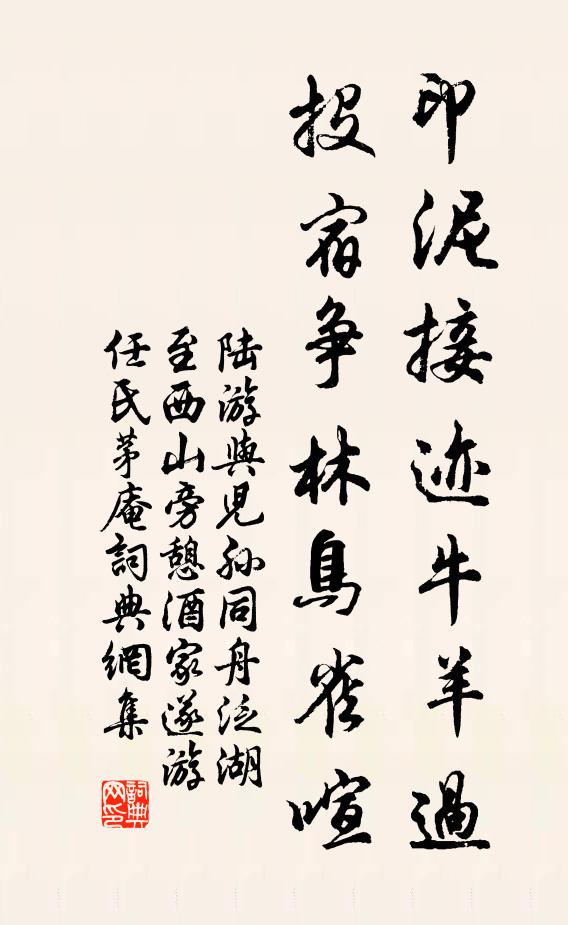 印泥接迹牛羊過
投宿争林鳥雀喧
陸游與兒孫同舟泛湖
至西山旁憩酒家遂游
任氏茅庵詞典網集
詞典网印